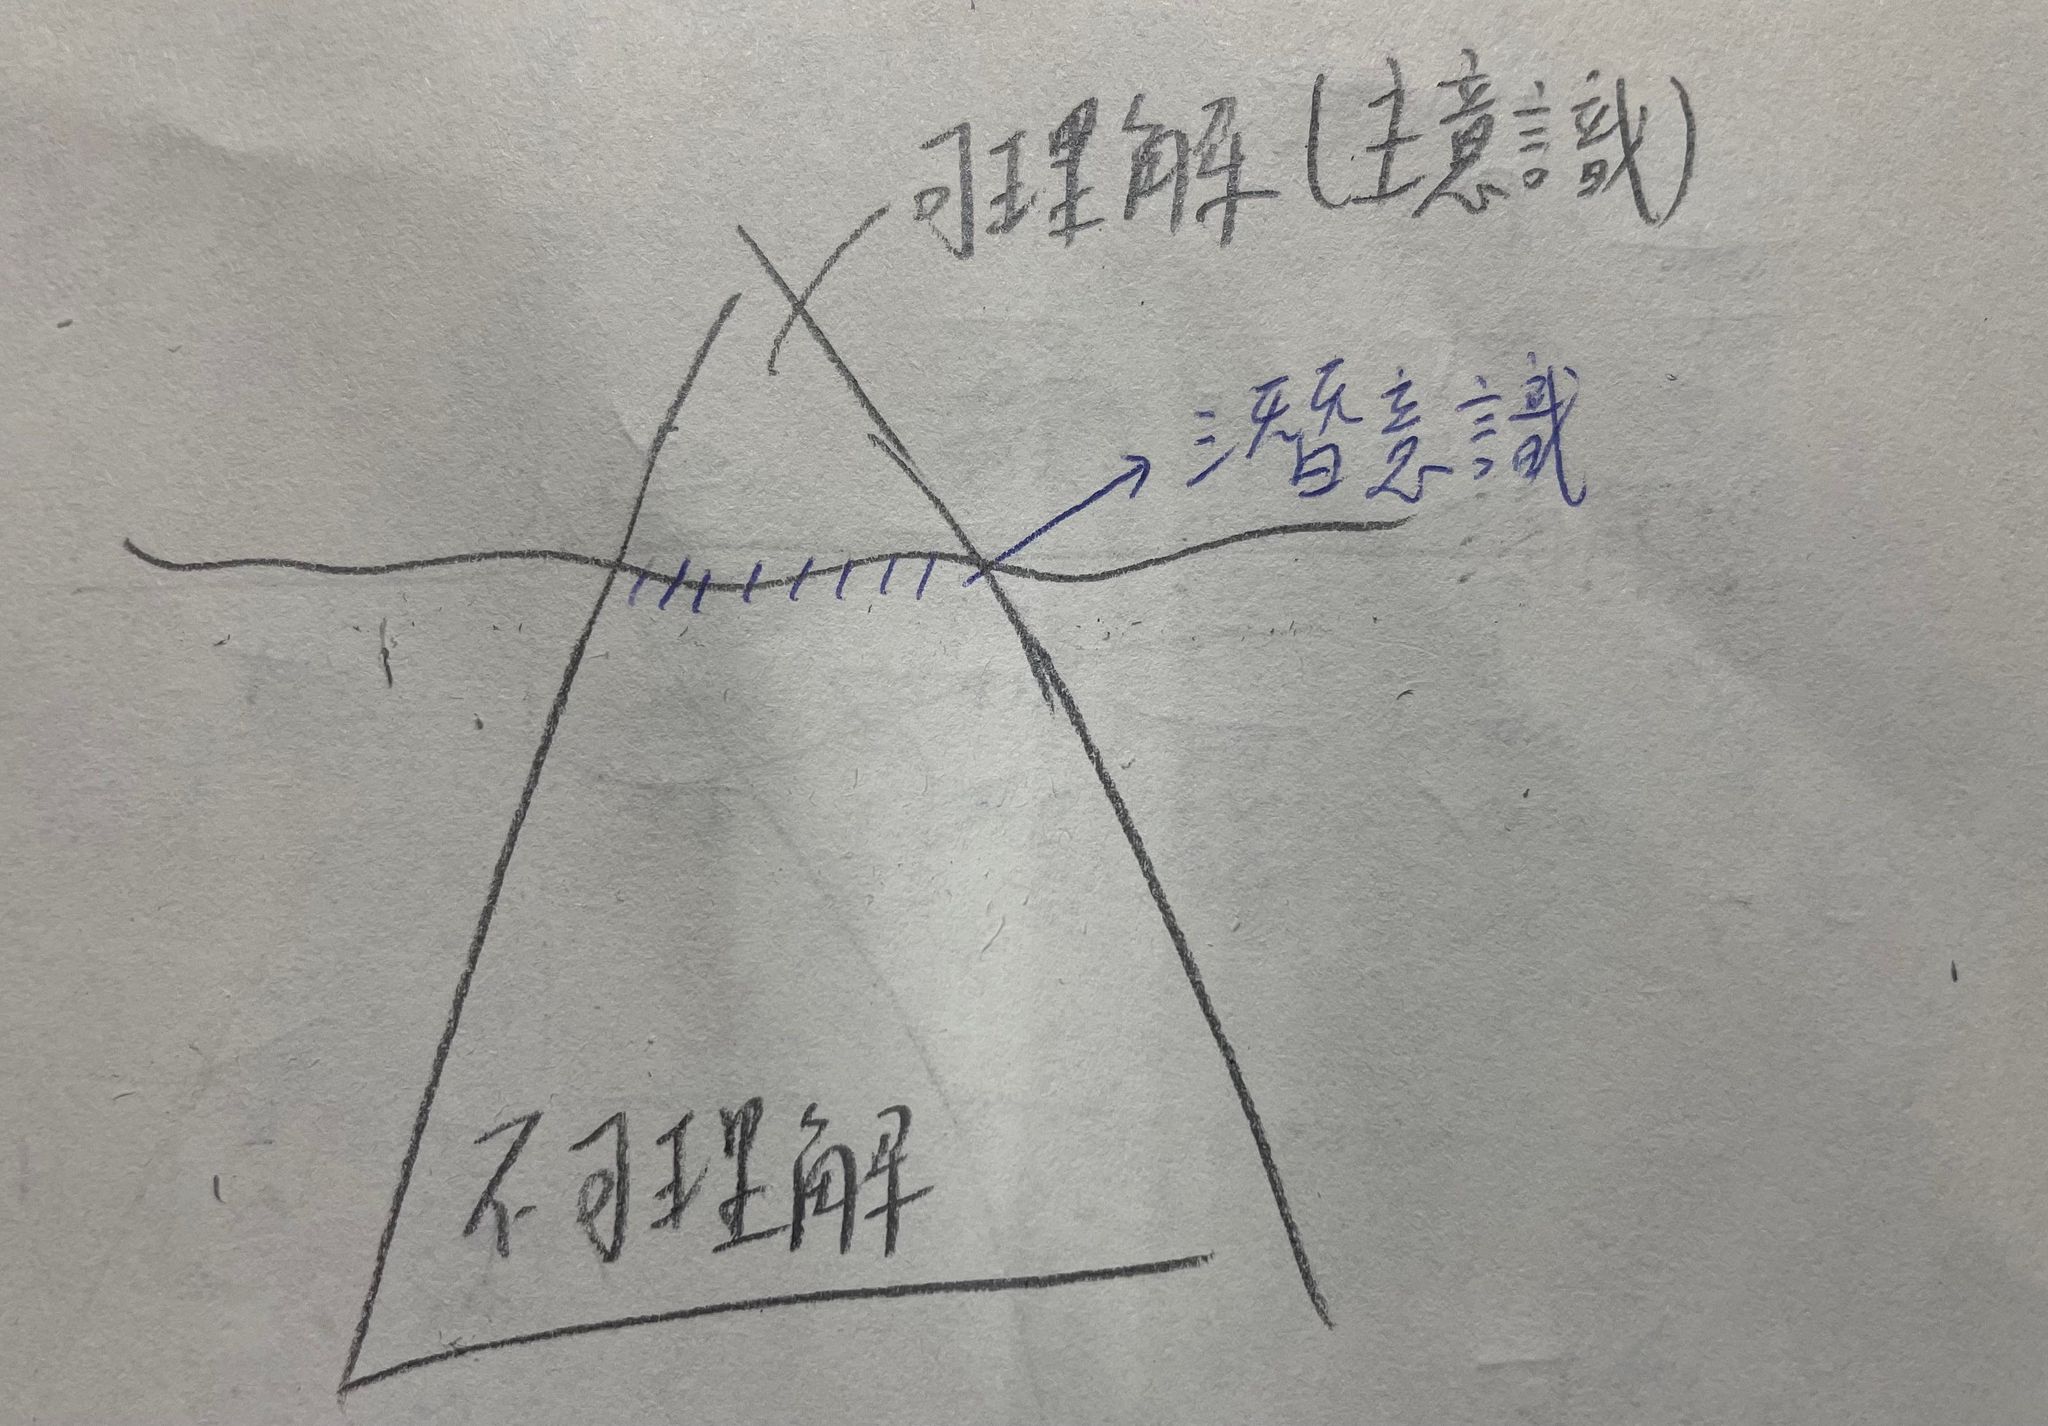 可理解(主意識)
潛意識
不可理解